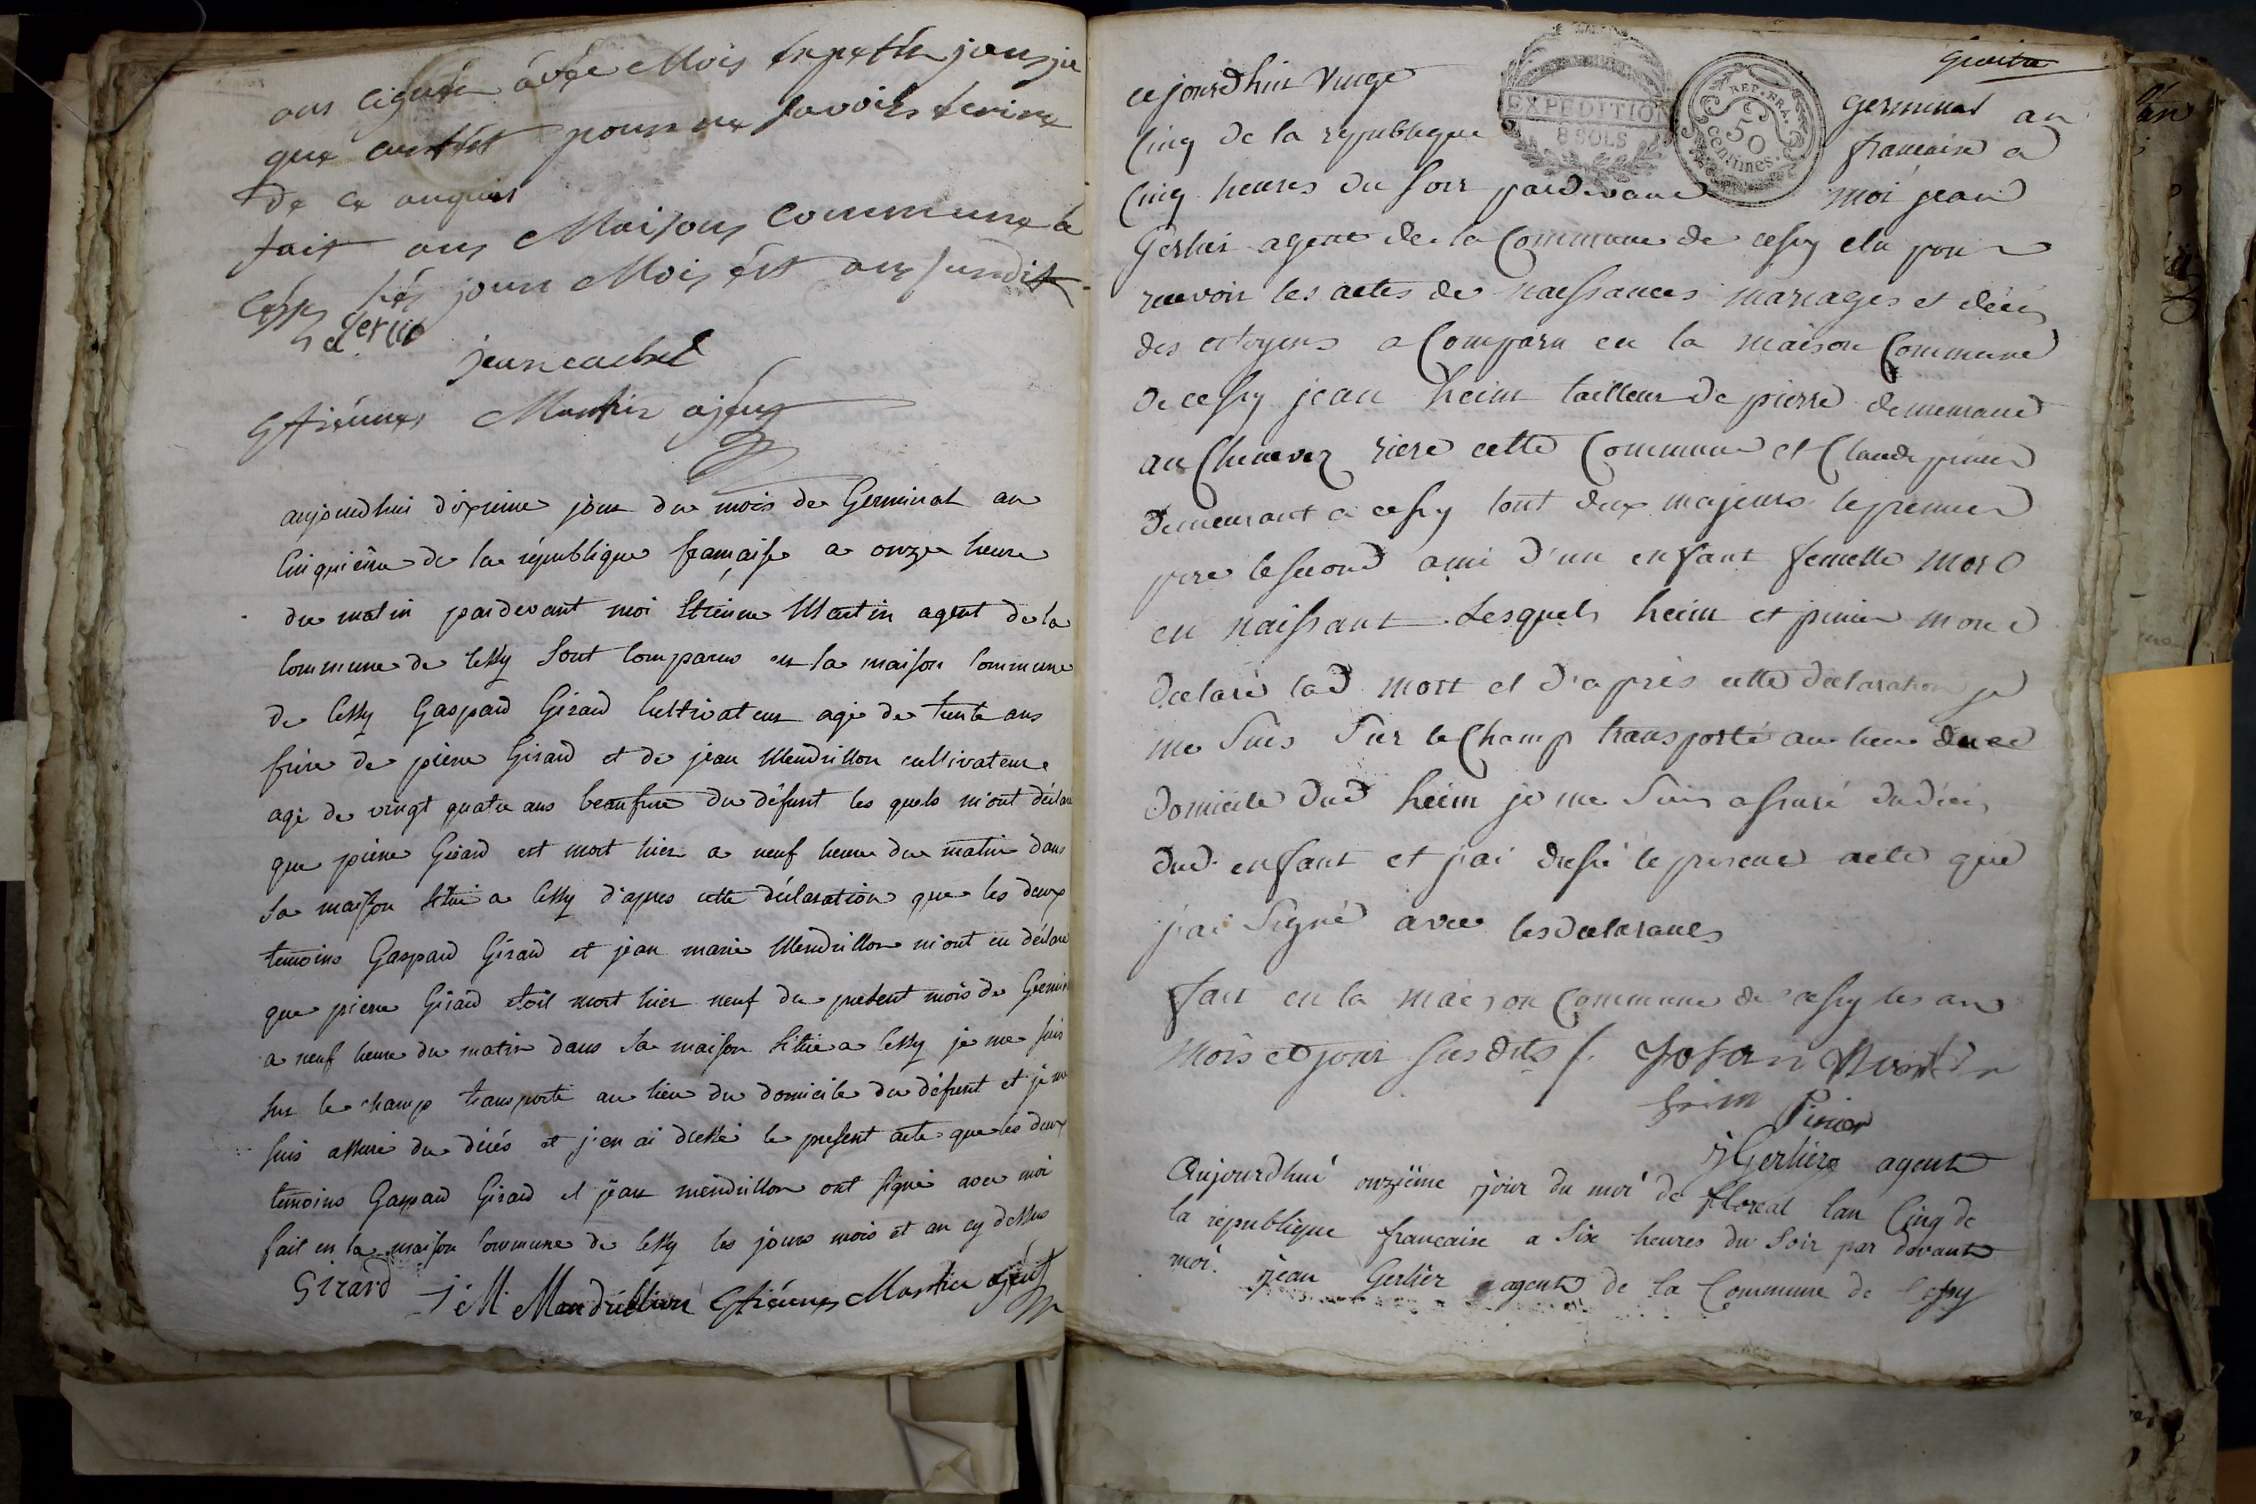 ons signé avec Mois
que cachet pour ne savoirs écrire
de ce
fait ans Maisons Commune a
jour Mois ést ans susdit
jean cachet
Estiénnes Martin ajent
aujourdhui dixieme jour du mois de Germinal an
cinquième de la république française a onze heure
du matin pardevant moi Etienne Martin agent de la
commune de Cessy sont comparus en la maison commune
de Cessy Gaspard Girard cultivateur agé de trente ans
frere de pierre Girard et de jean Mendrillon cultivateur
agé de vingt quatre ans beaufrere du défunt les quels m'ont déclaré
que pierre Girard est mort hier a neuf heure du matin dans
sa maison située a Cessy d'apres cette déclaration que les deux
temoins Gaspard Girard et jean marie Mendrillon m'ont en déclaré
que pierre Girard etoit mort hier neuf du present mois de Germinal
a neuf heure du matin dans sa maison située a Cessy je me suis
sur le champ transporté au lieu du domicile du défunt et je me
suis assuré du décés et j'en ai dressé le present acte que les deux
temoins Gaspard Girard et jean mendrillon ont signé avec moi
fait en la maison commune de Cessy les jours mois et an cy dessus
Girard J M Mandrillion Estiénnes Martin ajent
EXPEDITION
8 SOLS
REP. FRA.
50
Centimes.
cejourd'hui vingt germinal an
Cinq de la republique francaise a
Cinq heures du soir pardevant moi jean
Gerlier agent de la Commune de cessy elu pour
recevoir les actes de naissances mariages et décés
des citoyens a Comparu en la maison Commune
de cessy jean heim tailleur de pierre demeurant
au Chenevez riere cette Commune et Claude pinier
demeurant a cessy tout deux majeurs le premier
pere le second ami d'un enfant femelle mort
en naissant Lesquels heim et pinier m'ont
declaré lad mort et d'après cette declaration je
me suis sur le Champ transporté au lieu du
domicile dud heim je me suis assuré du décès
dud enfant et j'ai dressé le present acte que
j'ai signé avec les declarants
fait en la maison Commune de cessy les an
mois et jour susdits /. Johan
heim Pinier
J Gerlier agent
Aujourd'hui onzïéme jour du moi de floreal lan Cinq de
la republique francaise a Six heures du soir par devant
moi jean Gerlier agent de la Commune de Cessy